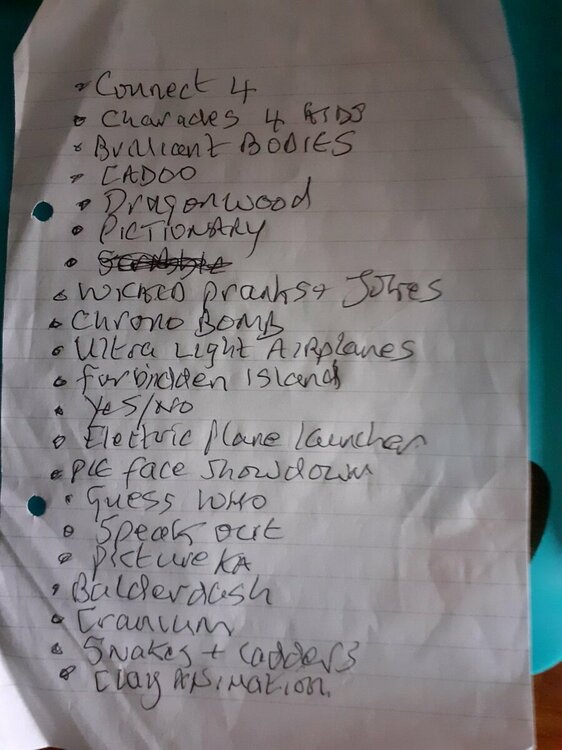 Connect 4
Charades 4 KIDS
Brilliant BODIES
CADOO
Dragonwood
PICTIONARY
WICKED pranks + Jokes
Chrono BOMB
Ultra Light AIRplanes
forbidden Island
Yes/No
Electric plane launcher
PIE face Showdown
Guess WHO
Speak out
Picture KA
Balderdash
Cranium
Snakes + Ladders
Clay ANiMATION.